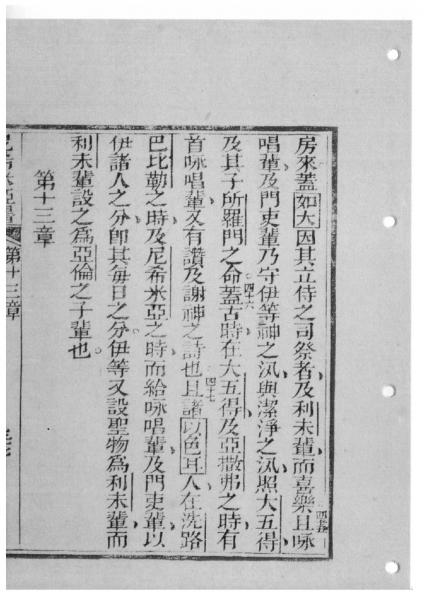 房來蓋如大因其立侍之司祭者及利未輩而喜樂且咏
四十五
唱輩及門吏輩乃守伊等神之汛與潔淨之汛照大五得
及其子所羅門之命蓋古時在大五得及亞撒弗之時有
四十六
首咏唱輩又有讚及謝神之詩也且諸以色耳人在洗路
四十七
巴比勒之時及尼希米亞之時而給咏唱輩及門吏輩以
伊諸人之分卽其每日之分伊等又設聖物為利未輩而
利未輩設之為亞倫之子輩也
第十三章
第十三章